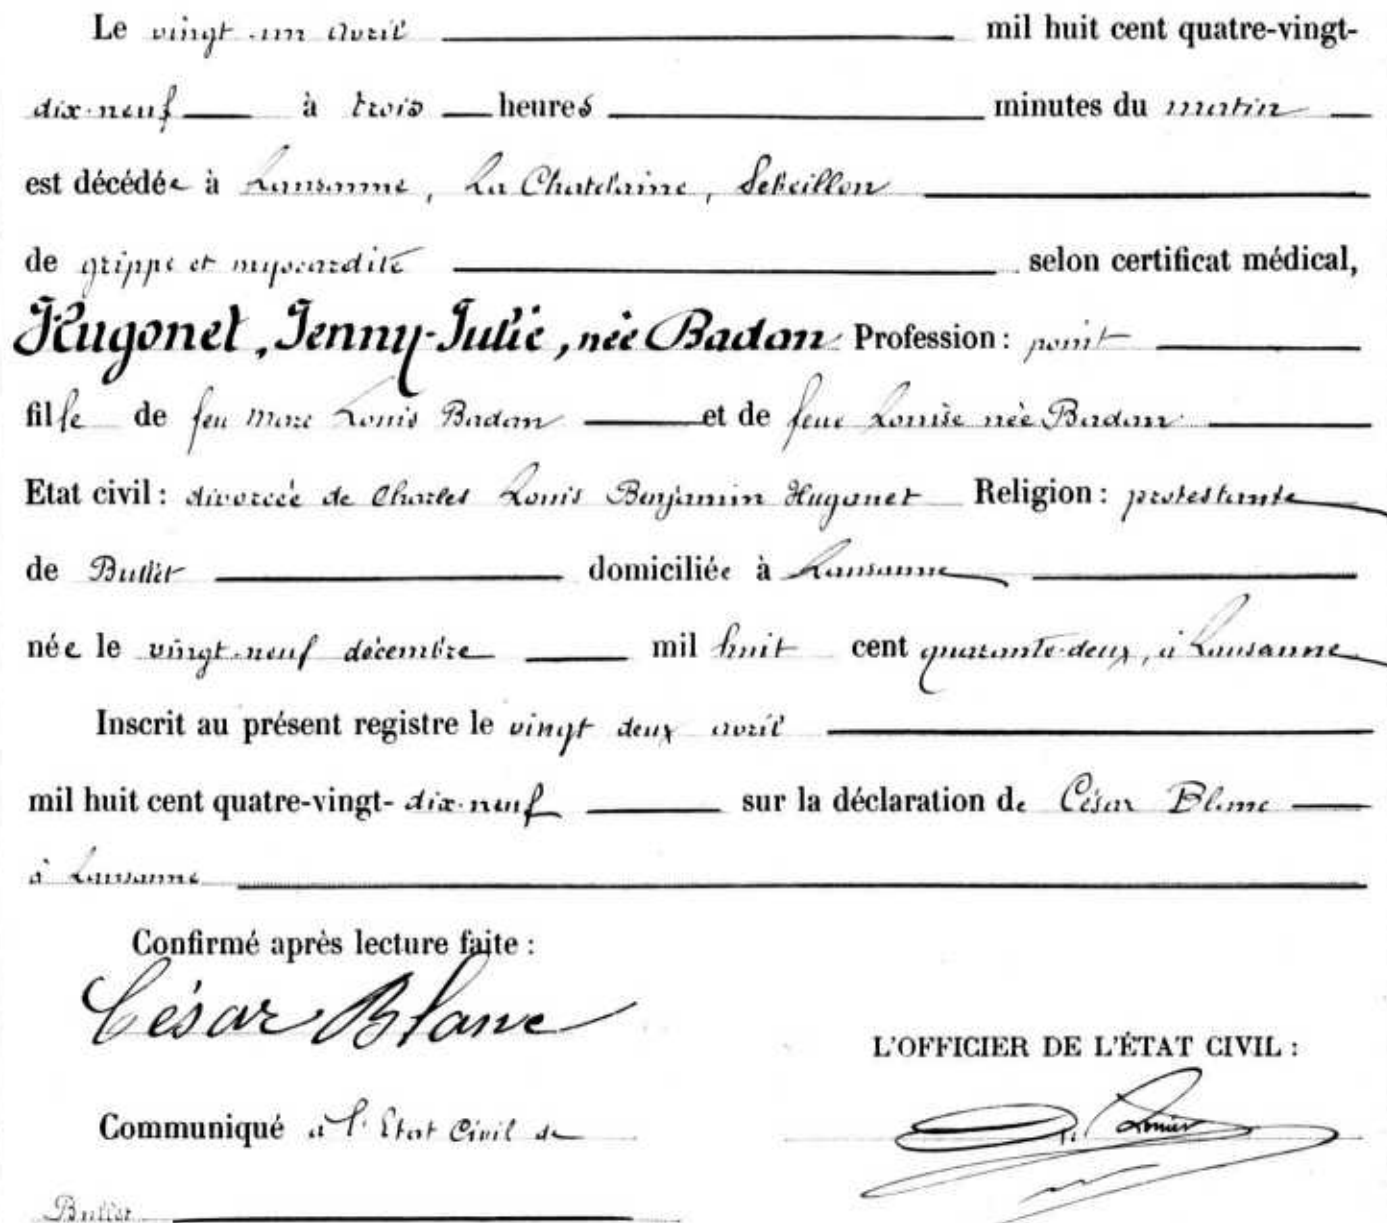 Le vingt-un avril mil huit cent quatre-vingt-
dix-neuf à trois heures minutes du matin
est décédée à Lausanne, La Chatelaine, Sébeillon
de grippe et myocardite selon certificat médical,
Hugonet, Jenny-Julie, née Badan Profession : point
fille de feu Marc Louis Badan et de feue Louise née Badan
Etat civil : divorcée de Charles Louis Benjamin Hugonet Religion : protestante
de Bullet domiciliée à Lausanne
née le vingt-neuf décembre mil huit cent quarante-deux, à Lausanne
Inscrit au présent registre le vingt deux avril
mil huit cent quatre-vingt- dix-neuf sur la déclaration de César Blanc
à Lausanne
Confirmé après lecture faite :
César Blanc
L'OFFICIER DE L'ÉTAT CIVIL :
Communiqué à l'Etat Civil de
Bullet